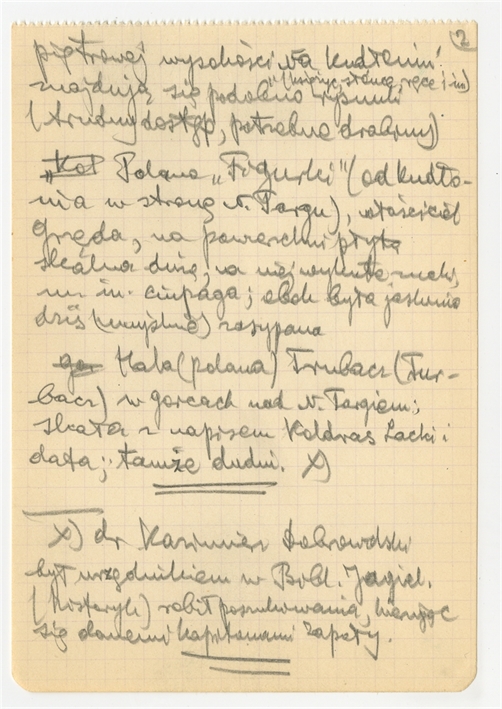 2
piętrowej wysokości. Na Kudłoniu
znajdują się podobno rysunki
(księżyc, słońce, ręce i in)
(trudny dostęp, potrzebne drabiny)
Polana „Figurki” (od Kudło-
nia w stronę N. Targu), właściciel
Gręda, na powierzchni płyta
skalna duża, na niej wykute znaki,
m. in. ciupaga; obok była jaskinia
dziś (umyślnie) zasypana
Hala (polana) Trubacz (Tur-
bacz) w Gorcach nad N. Targiem;
skała z napisem Koldras Lacki i
data; tamże dudni. X)
X) dr Kazimierz Dobrowolski
był urzędnikiem w Bibl. Jagiel.
(historyk) robił poszukiwania, kierując
się dawnemi kapitanami zapały.